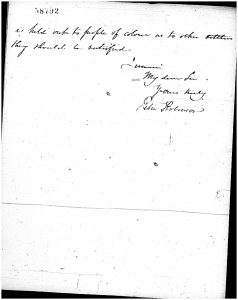 58792
is held out to people of colour as to other
they should be notified
I remain
My dear Sir
Yours truly
Peter Robinson